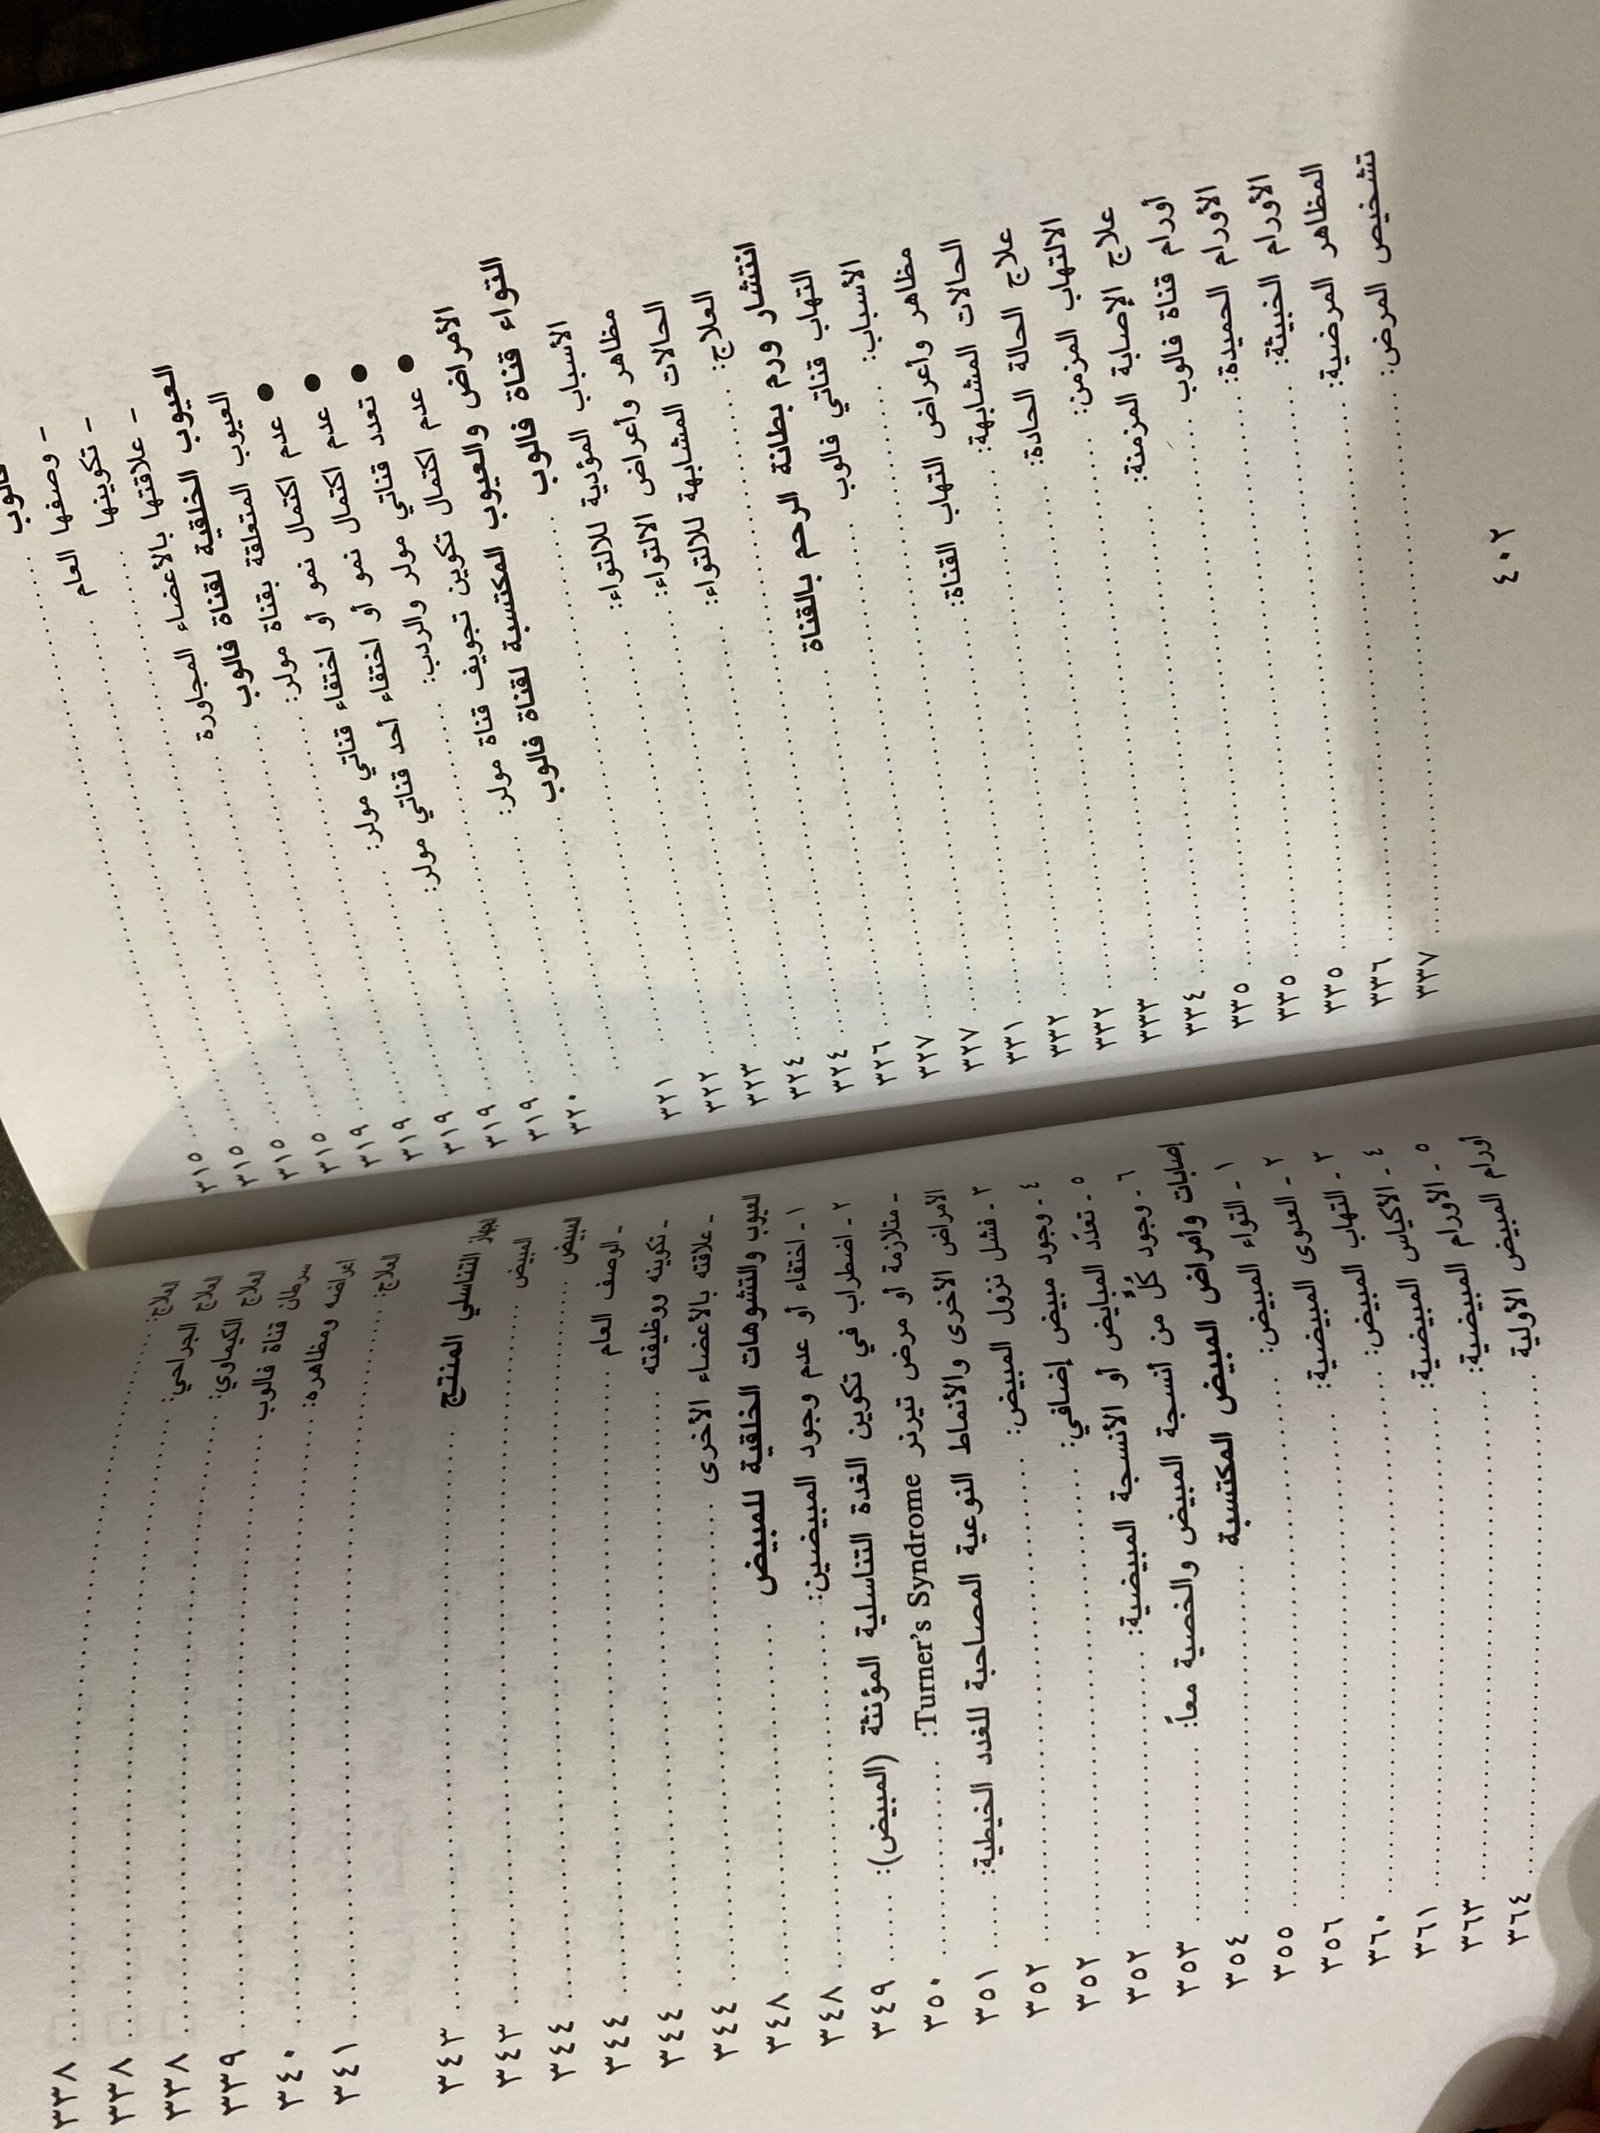 فالوب ........ ٣١٥
- وصفها العام ........ ٣١٥
- تكوينها ........ ٣١٥
- علاقتها بالأعضاء المجاورة ........ ٣١٥
العيوب الخلقية لقناة فالوب ........ ٣١٩
العيوب المتعلقة بقناة مولر: ........ ٣١٩
● عدم اكتمال نمو أو اختفاء قناتي مولر: ........ ٣١٩
● عدم اكتمال نمو أو اختفاء أحد قناتي مولر: ........ ٣١٩
● تعدد قناتي مولر والردب: ........ ٣١٩
● عدم اكتمال تكوين تجويف قناة مولر: ........ ٣٢٠
الأمراض والعيوب المكتسبة لقناة فالوب ........
التواء قناة فالوب ........ ٣٢١
الأسباب المؤدية للالتواء: ........ ٣٢٢
مظاهر وأعراض الالتواء: ........ ٣٢٣
الحالات المشابهة للالتواء: ........ ٣٢٤
العلاج: ........ ٣٢٤
انتشار ورم بطانة الرحم بالقناة ........ ٣٢٦
التهاب قناتي فالوب ........ ٣٢٧
الأسباب: ........ ٣٢٧
مظاهر وأعراض التهاب القناة: ........ ٣٣١
الحالات المشابهة: ........ ٣٣٢
علاج الحالة الحادة: ........ ٣٣٢
الالتهاب المزمن: ........ ٣٣٣
علاج الإصابة المزمنة: ........ ٣٣٤
أورام قناة فالوب ........ ٣٣٥
الأورام الحميدة: ........ ٣٣٥
الأورام الخبيثة: ........ ٣٣٥
المظاهر المرضية: ........ ٣٣٦
تشخيص المرض: ........ ٣٣٧
٤٠٢
العلاج: ........ ٣٣٨
العلاج الجراحي: ........ ٣٣٨
العلاج الكيماوي: ........ ٣٣٨
سرطان قناة فالوب ........ ٣٣٩
أعراضه ومظاهره: ........ ٣٤٠
العلاج: ........ ٣٤١
الجهاز التناسلي المنتج ........ ٣٤٣
المبيض ........ ٣٤٣
المبيض ........ ٣٤٤
- الوصف العام ........ ٣٤٤
- تكوينه ووظيفته ........ ٣٤٤
- علاقته بالأعضاء الأخرى ........ ٣٤٤
العيوب والتشوهات الخلقية للمبيض ........ ٣٤٨
١ - اختفاء أو عدم وجود المبيضين: ........ ٣٤٨
٢ - اضطراب في تكوين الغدة التناسلية المؤنثة (المبيض): ........ ٣٤٩
- متلازمة أو مرض تيرنر Turner's Syndrome: ........ ٣٥٠
الأمراض الأخرى والأنماط النوعية المصاحبة للغدد الخيطية: ........ ٣٥١
٣ - فشل نزول المبيض: ........ ٣٥٢
٤ - وجود مبيض إضافي: ........ ٣٥٢
٥ - تعدّد المبايض أو الأنسجة المبيضية: ........ ٣٥٢
٦ - وجود كُلٍّ من أنسجة المبيض والخصية معاً: ........ ٣٥٣
إصابات وأمراض المبيض المكتسبة ........ ٣٥٤
١ - التواء المبيض: ........ ٣٥٥
٢ - العدوى المبيضية: ........ ٣٥٦
٣ - التهاب المبيض: ........ ٣٦٠
٤ - الأكياس المبيضية: ........ ٣٦١
٥ - الأورام المبيضية: ........ ٣٦٣
أورام المبيض الأولية ........ ٣٦٤